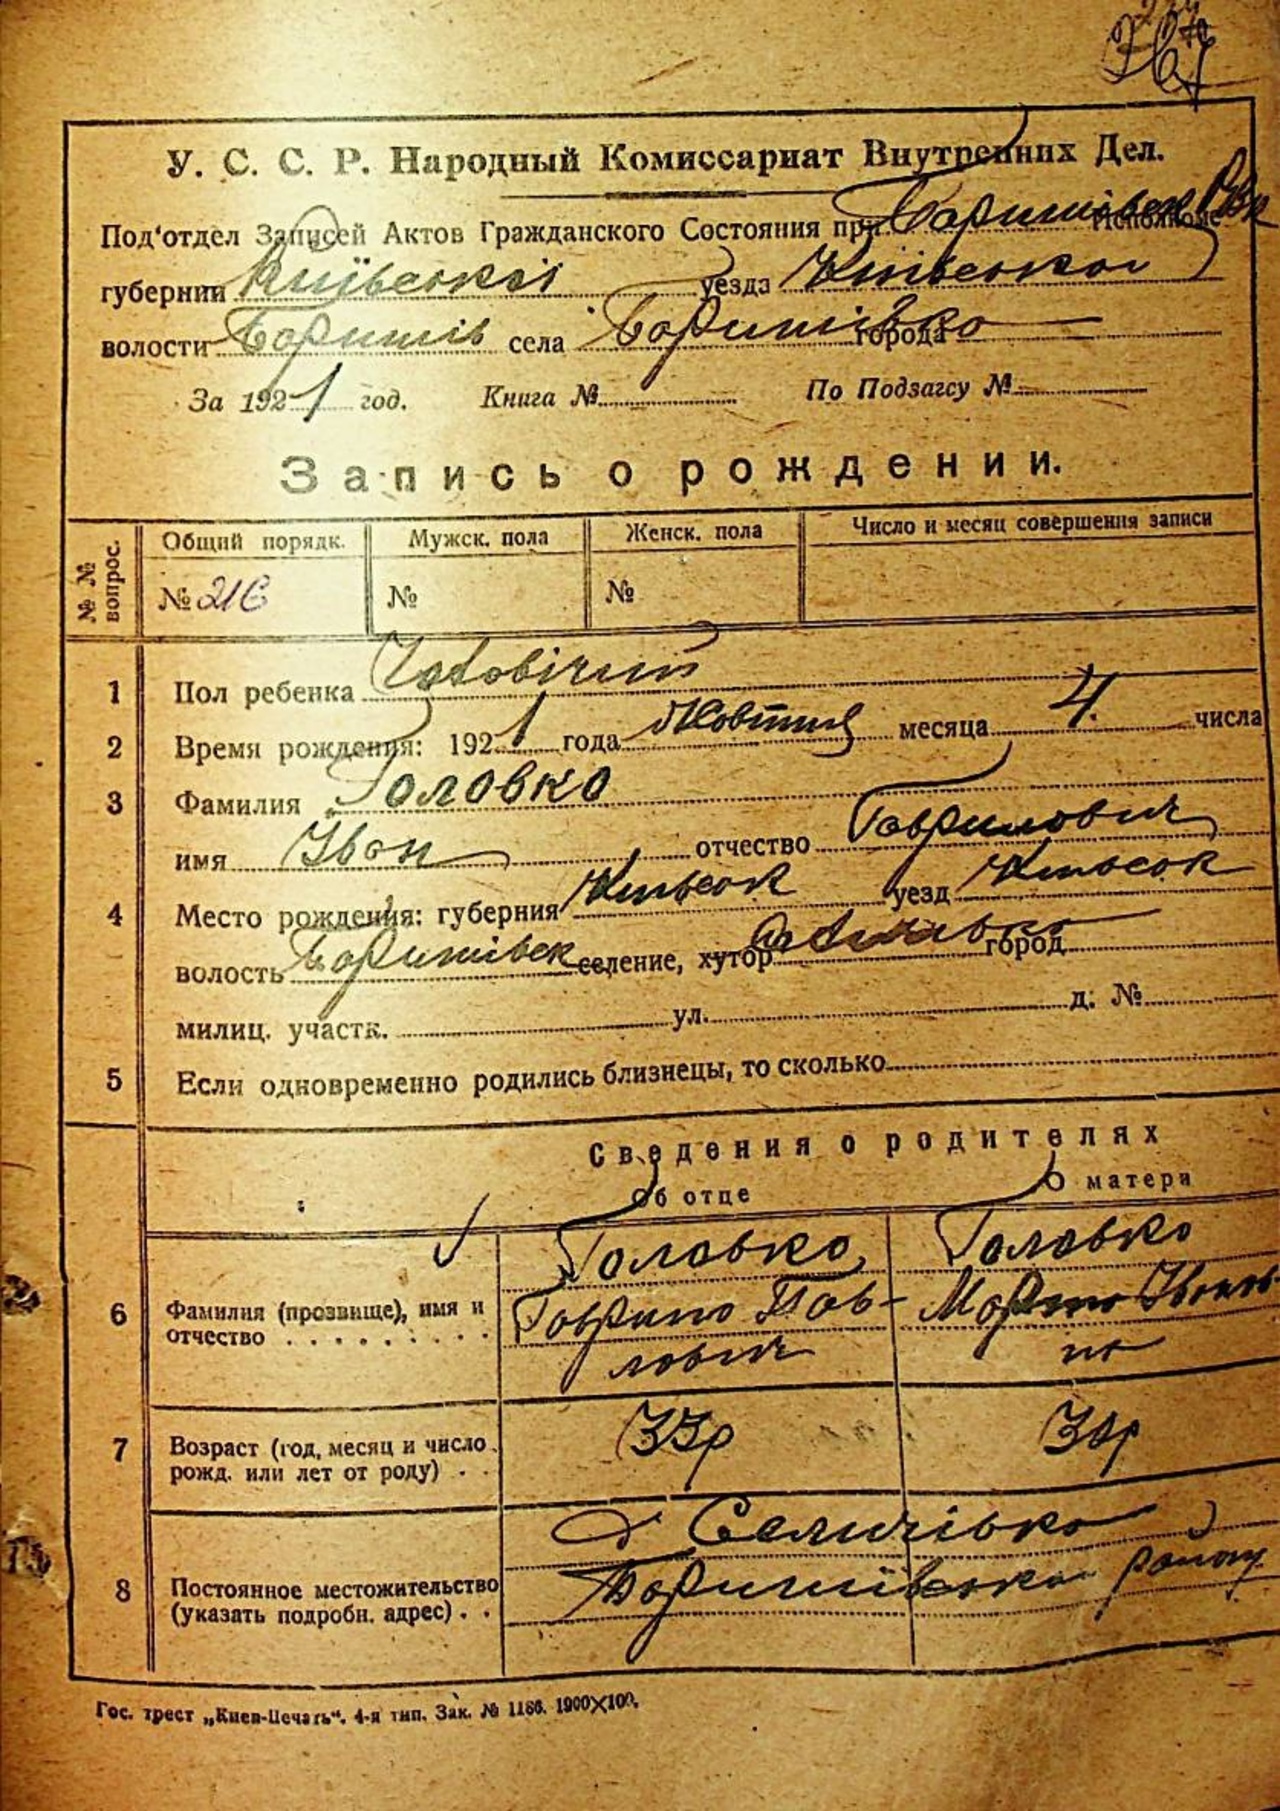 У. С. С. Р. Народный Комиссариат Внутренних Дел.
Под‘отдел Записей Актов Гражданского Состояния при Исполкоме
губернии Київської уезда Київської
волости Баришів села Баришівка города
За 1921 год. Книга № По Подзагсу №
Запись о рождении.
№ № вопрос. Общий порядк. Мужск. пола Женск. пола Число и месяц совершения записи
№ 216 № №
1 Пол ребенка Чоловічий
2 Время рождения: 1921 года Жовтня месяца 4. числа
3 Фамилия Головко
имя Іван отчество Гаврилович
4 Место рождения: губерния уезд
волость Баришівск селение, хутор город
милиц. участк. ул. д: №
5 Если одновременно родились близнецы, то сколько
Сведения о родителях
Об отце О матери
6 Фамилия (прозвище), имя и отчество Головко Гаврило Павлович Головко Іванівна
7 Возраст (год, месяц и число рожд. или лет от роду) 33р
8 Постоянное местожительство (указать подробн. адрес) Селичівка Баришівського району
Гос. трест „Киев-Печать“. 4-я тип. Зак. № 1186. 1900×100.